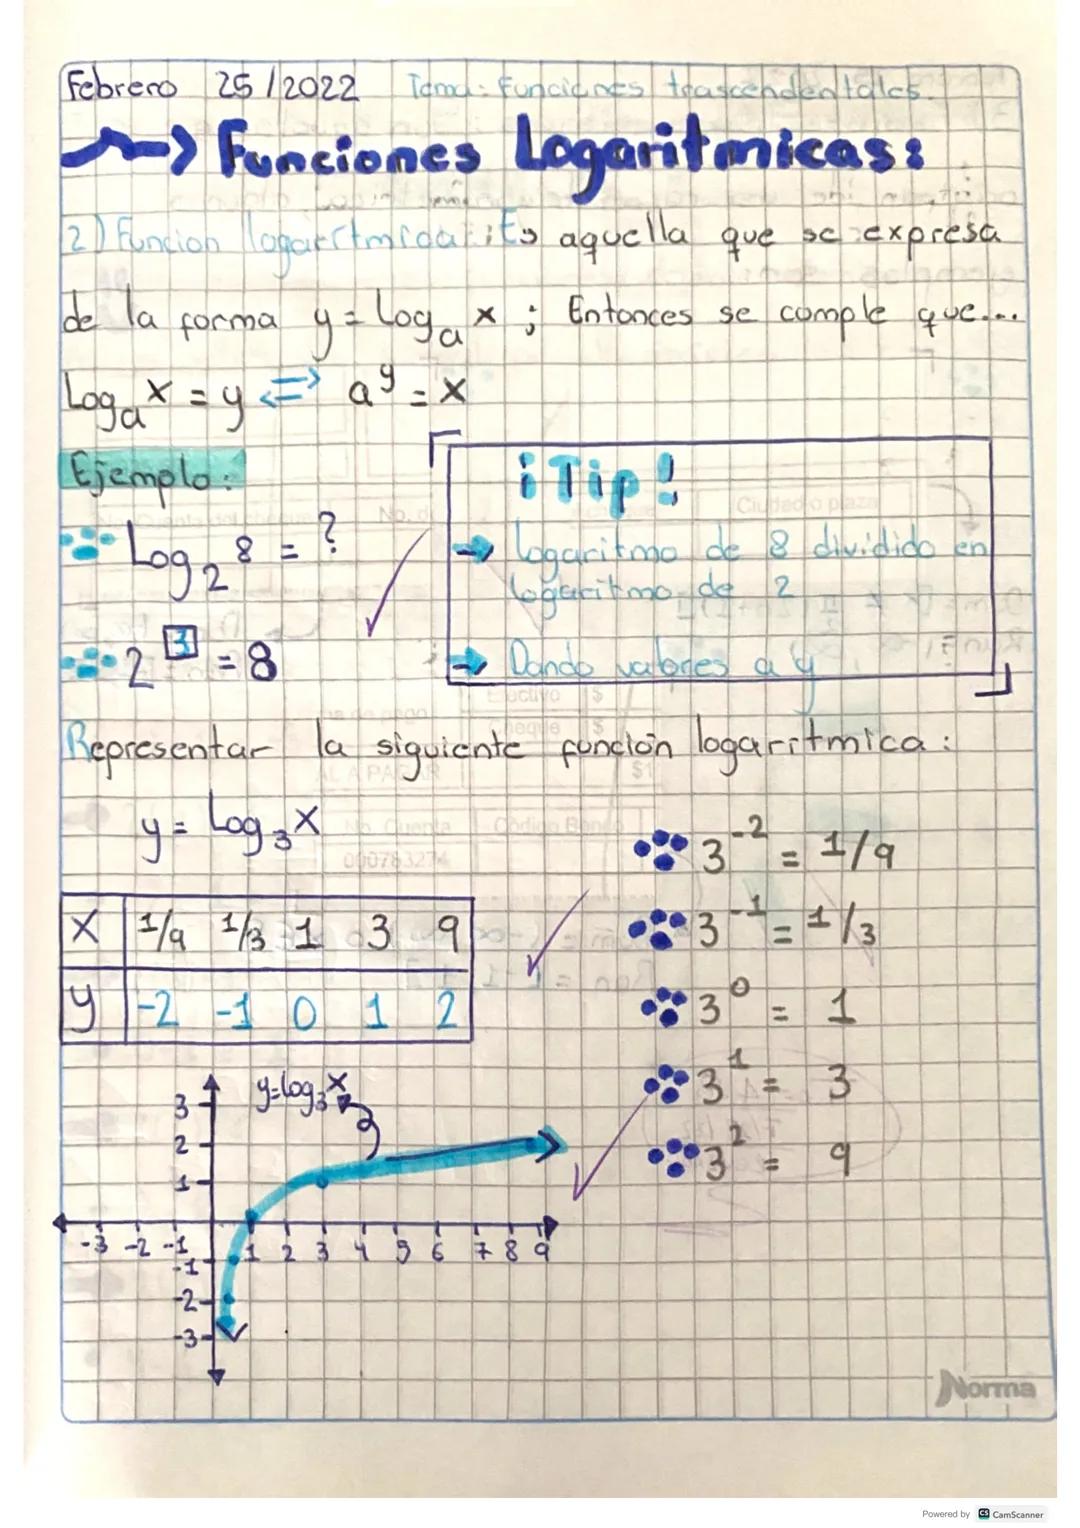 Febrero 25/2022 Tema: Funciones trascendentales.
Funciones Logaritmicas:
2) Funcion logaritmica: Es aquella que se expresa
de la forma y = Logₐ x ; Entonces se comple que...
Logₐ x = y ⇔ aʸ = x
Ejemplo:
Log₂ 8 = ?
2³ = 8
¡Tip!
→ logaritmo de 8 dividido en
logaritmo de 2
→ Dando valores a y
Representar la siguiente función logaritmica:
y = Log₃ x
X 1/9 1/3 1 3 9
y -2 -1 0 1 2
3⁻² = 1/9
3⁻¹ = 1/3
3⁰ = 1
3¹ = 3
3² = 9
y=log₃x
3
2
1
-3 -2 -1 1 2 3 4 5 6 7 8 9
-1
-2
-3
Norma
Powered by CS CamScanner